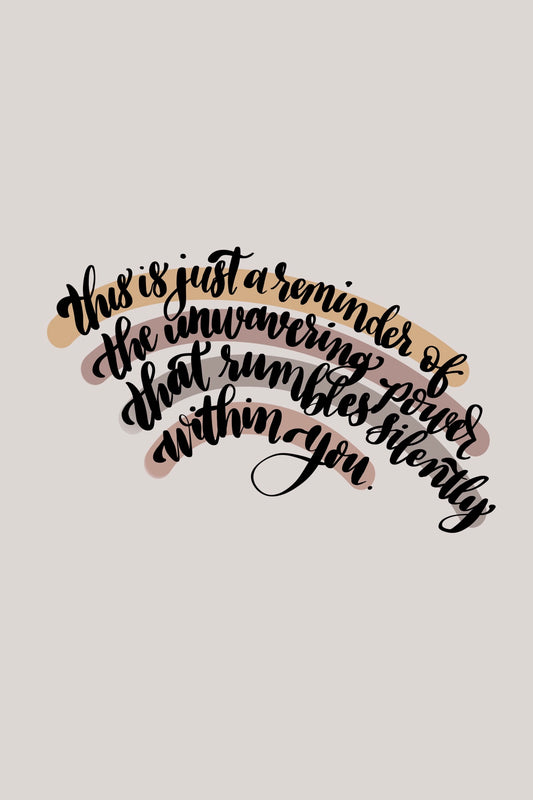 this is just a reminder of
the unwavering power
that rumbles silently
within you.